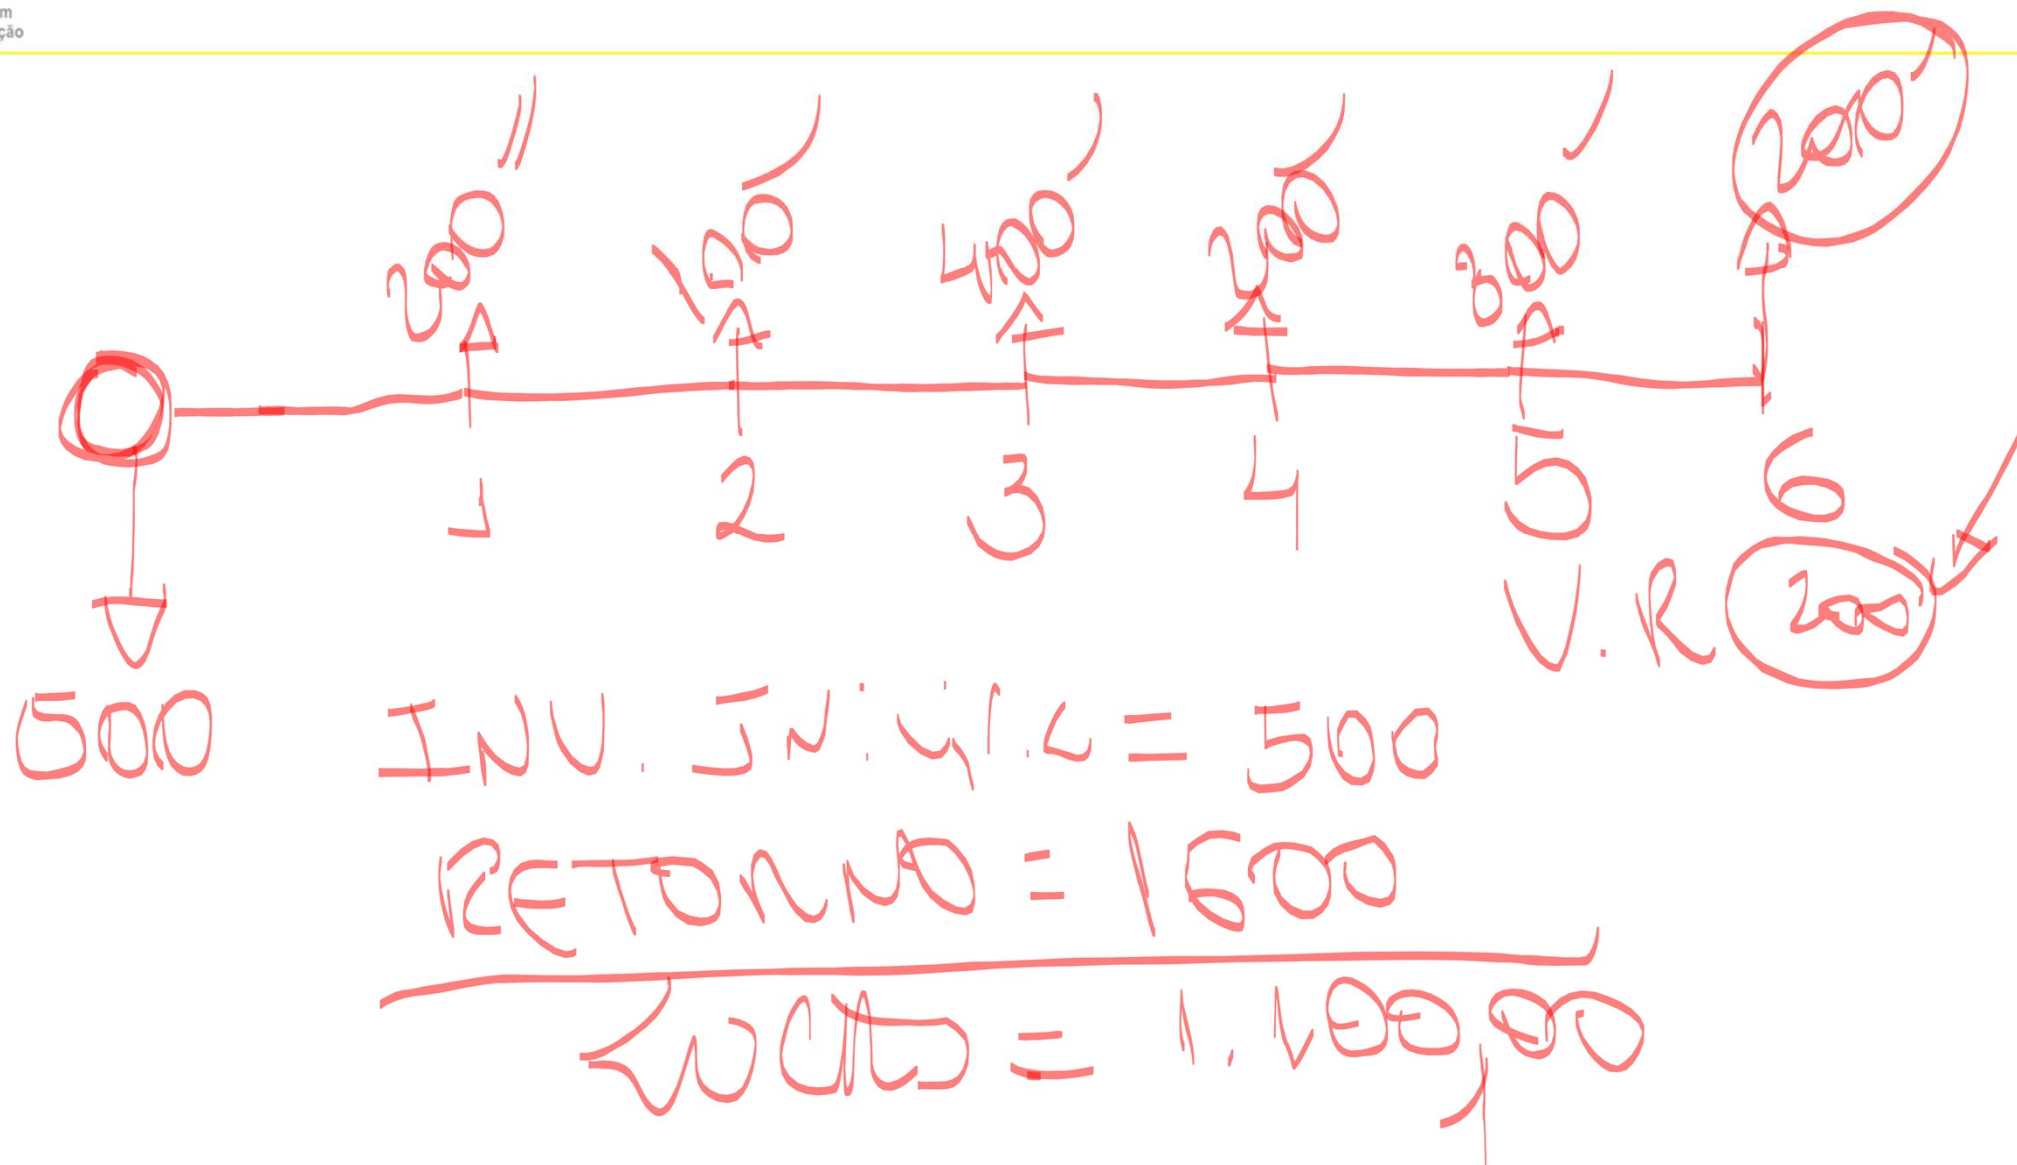 m
ção
200 100 400 200 300 200
1 2 3 4 5 6
V.R 200
500 INV. Inicial = 500
RETORNO = 1600
LUCRO = 1.100,00